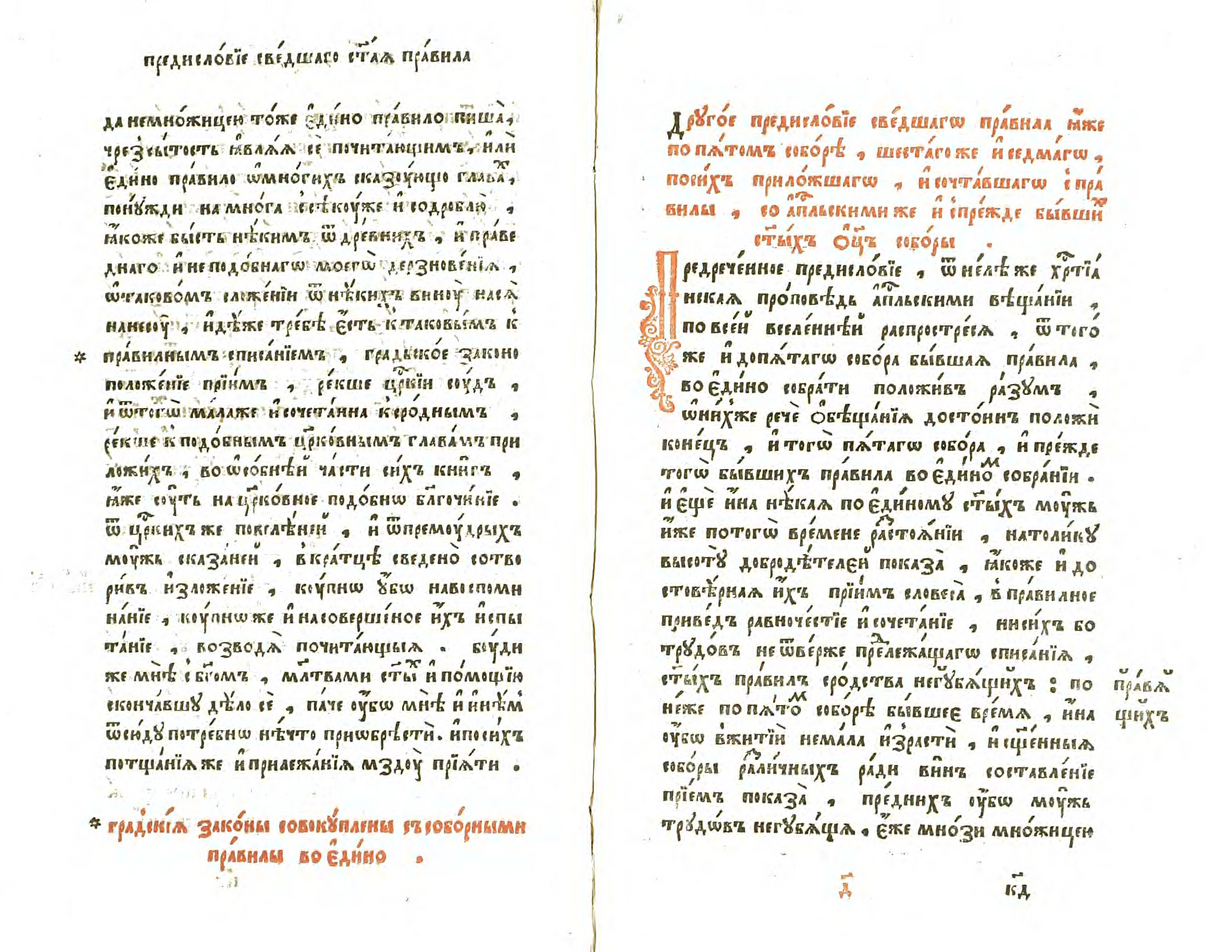 предисло́вїе све́дшаго ст҃а́ѧ пра́вила
да немно́жицею то́же є҆ди́но пра́вило пи́ша,
чрез̾сы́тость ꙗ҆влѧ́ѧ сѐ почита́ющимъ, и҆лѝ
є҆ди́но пра́вило ѡ҆мно́гихъ сказꙋ́ющо глава́х,
пону́жди на мно́га ссѣко́уже и҆ содроблю̀ ,
ꙗ҆́коже бы́сть нѣ́кимъ ѿ дре́внихъ , и҆ пра́ве
днаго и҆ неподо́бнагѡ моегѡ̀ дерзнове́нїѧ ,
ѡ҆таково́мъ сложе́нїи ѿ нѣ́кихъ винꙋ̀ насѧ̀
нанесꙋ̀ , и҆дѣ́же тре́бѣ є҆́сть ктаковы́мъ к
* пра́вилнымъ списа́нїемъ , гра́дьско́е зако́но
положе́нїе прїи́мъ , ре́кше цр҃кїи соу́дъ ,
и҆ ѿтогѡ̀ ма́лаже и҆ сочета́нна ксро́днымъ ,
ре́кше к подо́бнымъ цр҃ко́внымъ глава́мъ при
ложи́хъ , во ѡ҆со́бнѣй ча́сти си́хъ кни́гъ ,
ꙗ҆́же соу́ть на цр҃ко́вное подо́бнѡ бл҃гочи́нїе .
ѿ цр҃кихъ же повелѣ́ней , и҆ ѿпремоу́дрыхъ
моу́жь сказа́ней , в кра́тцѣ сведено̀ сотво
ри́въ и҆зложе́нїе , коу́пнѡ у҆́бѡ навоспоми
на́нїе , коу́пнѡ же и҆ насоверше́ное и҆́хъ и҆спы
та́нїе , возводѧ̀ почита́ющыѧ . боу́ди
же мнѣ̀ с бг҃омъ , мл҃твами ст҃ы́х и҆ по́мощїю
сконча́вшу дѣ́ло сѐ , па́че оу҆́бѡ мнѣ̀ и҆ и҆нѣ́м
ѿсю́ду потре́бнѡ нѣ́что приѡбрѣ́сти. и҆ поси́хъ
потща́нїѧ же и҆ прилежа́нїѧ мздоу̀ прїѧ́ти .
* гра́дскїѧ зако́ны совоку́плены съ собо́рными
пра́вилы во є҆ди́но .
Друго́е предисло́вїе све́дшагѡ пра́вила ꙗ҆́же
по пѧ́томъ собо́рѣ , шеста́го же и҆ седма́гѡ ,
поси́хъ прило́жшагѡ , и҆ сочта́вшагѡ с пра́
вилы , со а҆пⷭ҇льскими же и҆ спре́жде бы́вши́х
ст҃ы́хъ ѻ҆ц҃ъ собо́ры .
Предрече́нное предисло́вїе , ѿ не́лѣ же хрⷭ҇тїа́
нская про́повѣдь а҆пⷭ҇льскими вѣща́нїи ,
по все́й вселе́ннѣй распростре́сѧ , ѿ того́
же и҆ до пѧ́тагѡ собо́ра бы́вшаѧ пра́вила ,
во є҆ди́но собра́ти положи́въ ра́зумъ ,
ѡ҆ ни́хже речѐ ѻ҆бѣща́нїѧ досто́инъ положѝ
коне́цъ , и҆ тогѡ̀ пѧ́тагѡ собо́ра , и҆ пре́жде
тогѡ̀ бы́вшихъ пра́вила во є҆ди́номъ собра́нїи .
и҆ є҆щѐ и҆́на нѣ́каѧ по є҆ди́ному ст҃ы́хъ моу́жь
и҆́же по тогѡ̀ вре́мене разстоѧ́нїи , на толи́ку
высоту̀ добродѣ́телей показа̀ , ꙗ҆́коже и҆ до
стовѣ́рнаѧ и҆́хъ прїи́мъ словеса̀ , в пра́вилное
приве́дъ равноче́стїе и҆ сочета́нїе , ни си́хъ бо
трудо́въ не ѿве́рже прⷣележа́щагѡ списа́нїѧ ,
ст҃ы́хъ пра́вилъ сро́дства негубѧ́щихъ : по
не́же по пѧ́томъ собо́рѣ бы́вшее вре́мѧ , и҆́на
оу҆́бѡ в житїѝ нема́ла и҆зрастѝ , и҆ сщ҃е́нныѧ
собо́ры разли́чныхъ ра́ди ви́нъ составле́нїе
прїе́мъ показа̀ , пре́днихъ оу҆́бѡ моу́жь
трудѡ́въ негубѧ́щїѧ , є҆́же мно́зи мно́жицею
пра́вѧ
щихъ
д҃
к҃д